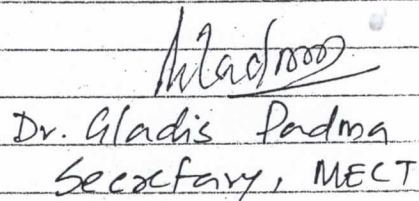 Dr. Gladis Padma
Secretary, MECT